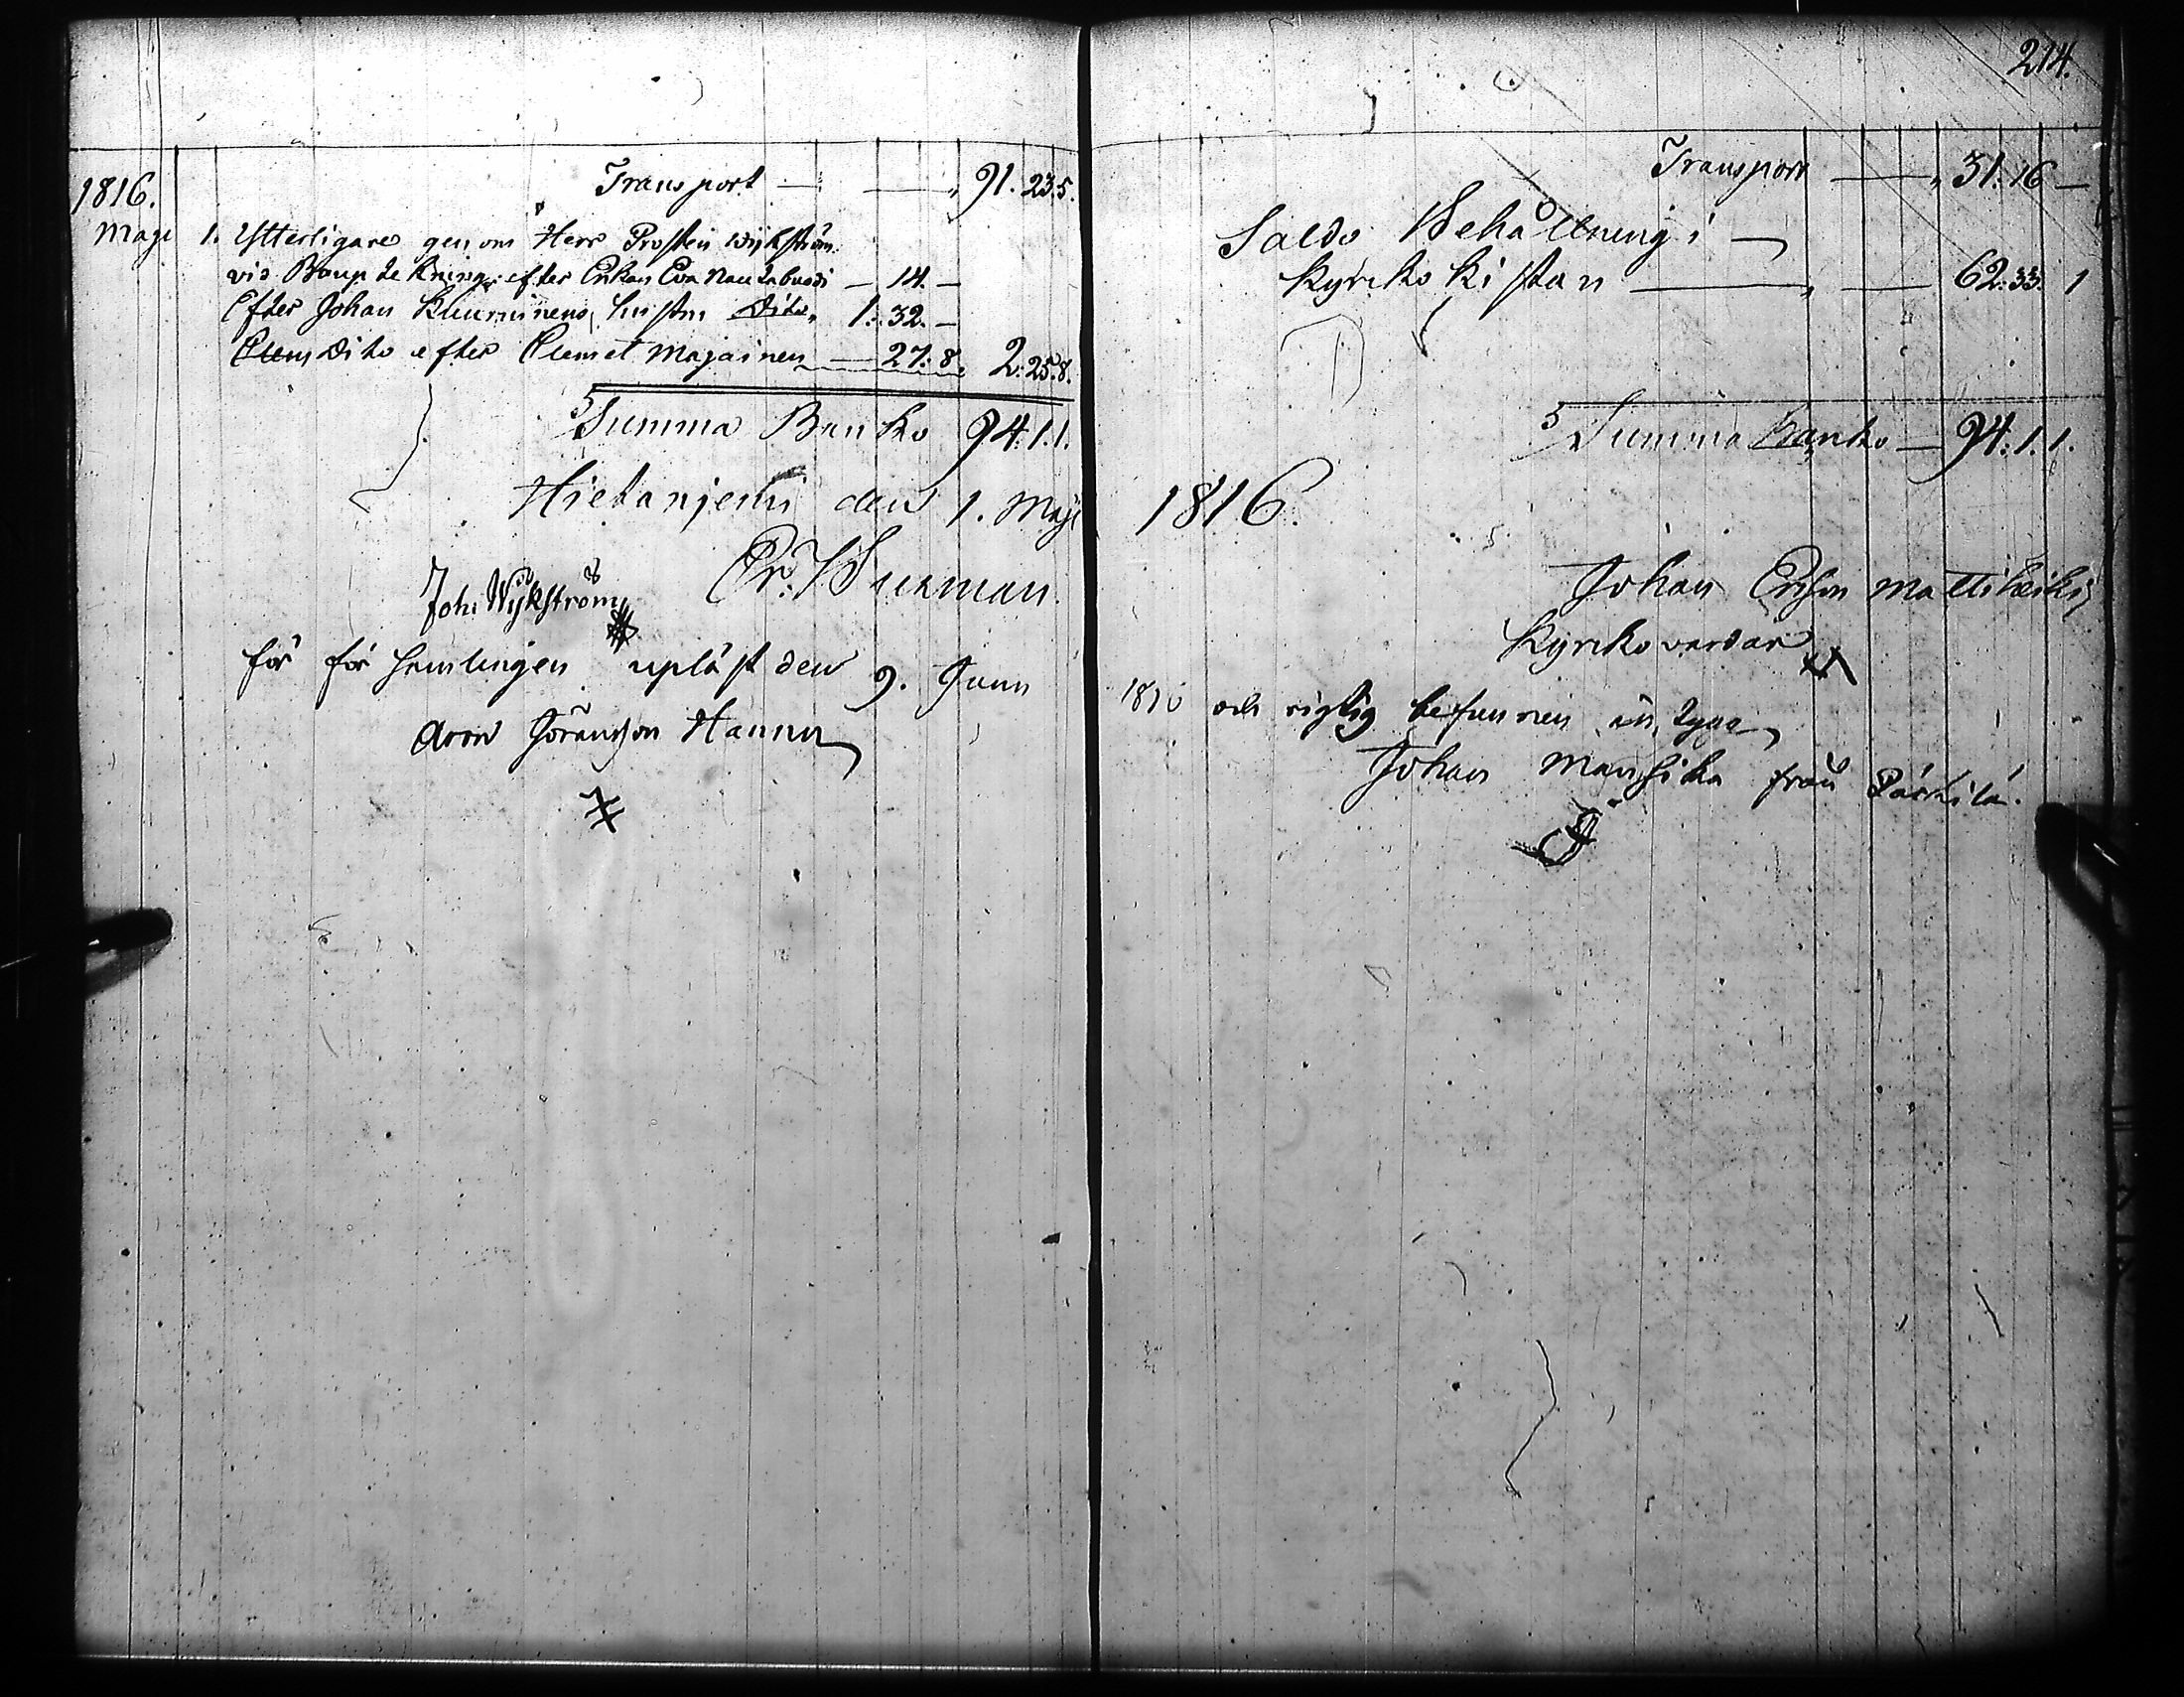 1816. Transport — — 91. 23. 5.
Maji 1. Ytterligare genom Herr Prosten Wijkström
vid Boup efter Enkan Eva — 14. —
Efter Johan hustru Dito, 1: 32. —
Dito efter Clemet Majainen — 27: 8. 2: 25. 8.
Summa Banko 94. 1. 1.
Hietanjemi den 1. Maji
Joh: Wijkström Er: Wurman
för för samlingen upläst den 9. Junii
Aron Göransson Hannu
214.
Transport — 31. 16 —
Saldo Behållning i —
Kyrcko Kistan — — 62: 33. 1
Summa Banko — 94. 1. 1.
1816.
Johan Ersson Mattiheiki
Kyrckovärdar
1816 och rigtig befunnen
Johan Mansika från Pärkilä.